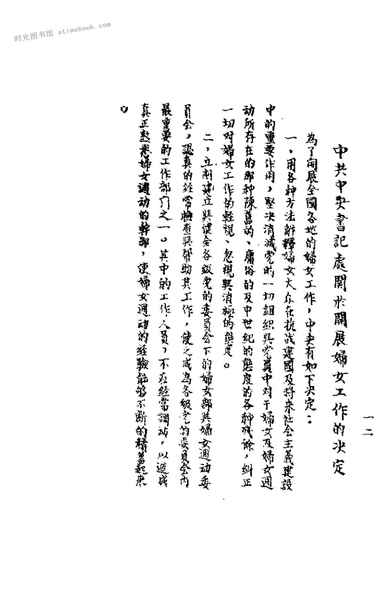 时光图书馆 etimebook.com
一二
中共中央書記處関於開展婦女工作的决定
為了開展全國各地的婦女工作，中央有如下决定：
一、用各种方法解釋婦女大众在抗战建國及將來社会主義建設
中的重要作用，堅决消滅党的一切組織與党員中对于婦女及婦女運
動所存在的那种陳舊的、庸俗的及中世紀的態度的各种殘餘，糾正
一切对婦女工作的輕視、忽視與消極的態度。
二、立刻建立與健全各級党的委員会下的婦女部與婦女運动委
員会，認真的經常檢查與帮助其工作，使之成為各級党的委員会內
最重要的工作部門之一。其中的工作人員，不应經常調动，以造成
真正熟悉婦女運动的幹部，使婦女運动的經驗能够不断的積蓄起來
。